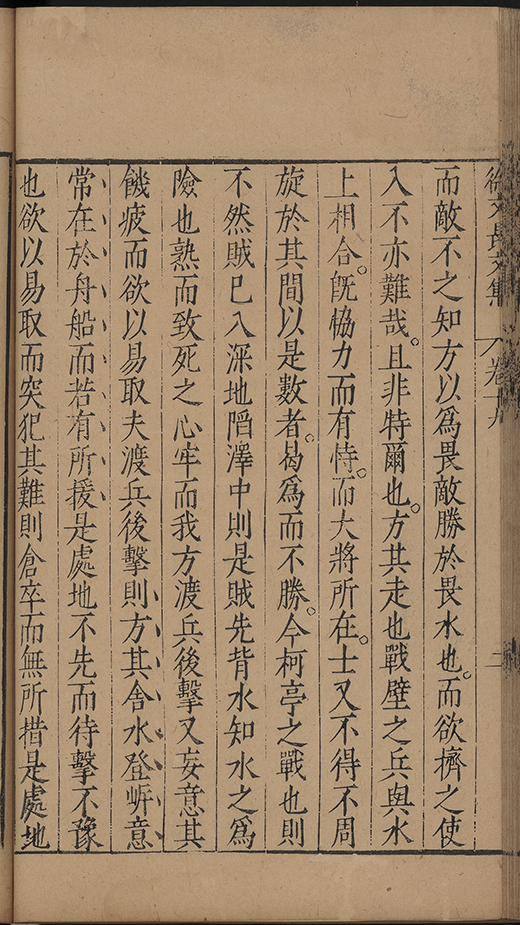 徐文長文集 卷十八 二
而敵不之知方以爲畏敵勝於畏水也而欲擠之使
入不亦難哉且非特爾也方其走也戰壁之兵與水
上相合旣恊力而有恃而大將所在士又不得不周
旋於其間以是數者曷爲而不勝今柯亭之戰也則
不然賊已入深地䧟澤中則是賊先背水知水之爲
險也熟而致死之心牢而我方渡兵後擊又妄意其
饑疲而欲以易取夫渡兵後擊則方其舍水登岍意
常在於舟船而若有所援是處地不先而待擊不豫
也欲以易取而突犯其難則倉卒而無所措是處地